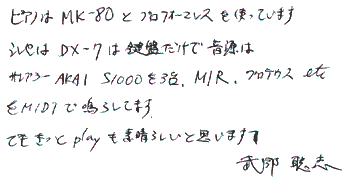 ピアノは MK-80 と プロフォーマレス を 使っています
シンセは DX-7 は 鍵盤だけで 音源は
AKAI S1000を3台、M1R、プロテウス etc
をMIDIで 鳴らしてます
でも きっと play も 素晴らしいと思います
武部 聡志